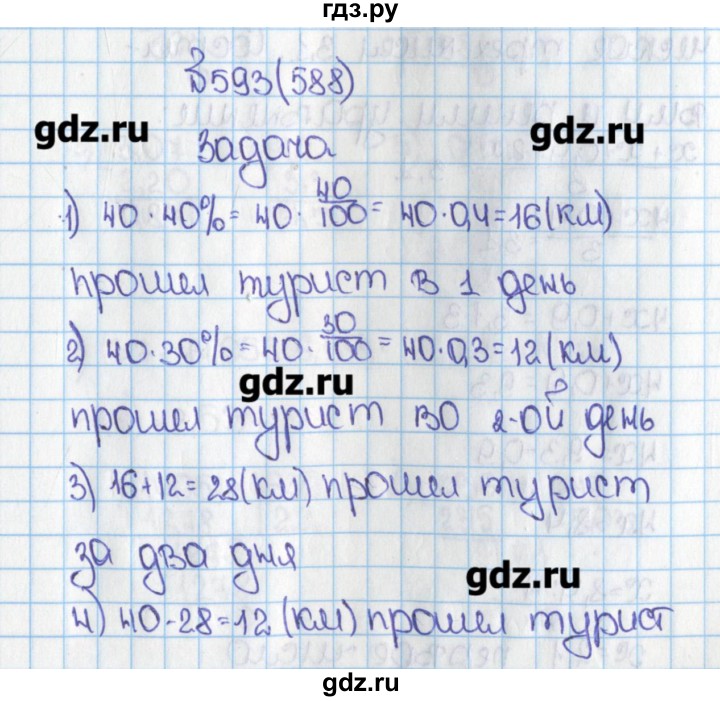 гдз.ру
№593(588)
gdz.ru
gdz.ru
Задача
1) 40·40%= 40· 40/100 = 40·0,4=16(км)
прошел турист в 1 день
2) 40·30%= 40· 30/100 = 40·0,3=12(км)
gdz.ru
прошел турист во 2-ой день
3) 16+12=28(км) прошел турист
за два дня
gdz.ru
4) 40-28=12(км) прошел турист
gdz.ru